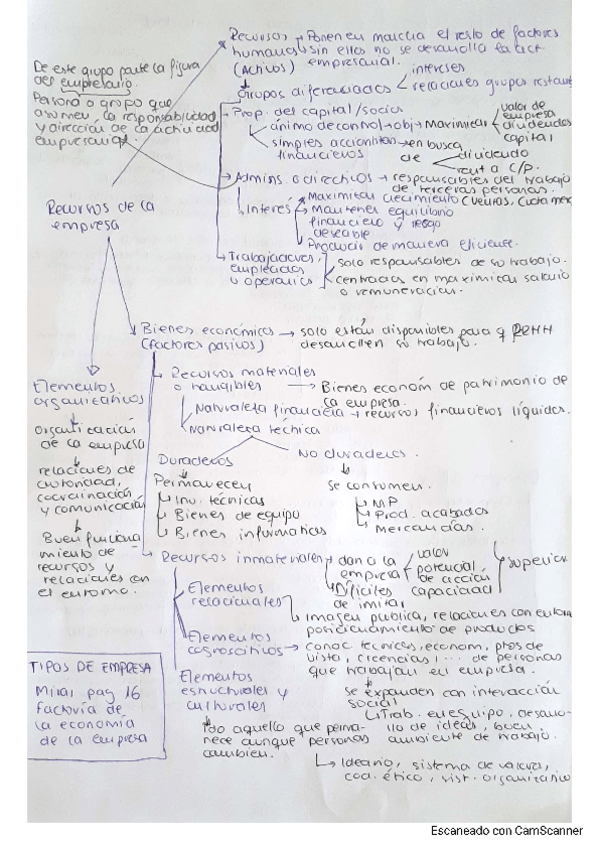 Recursos → Ponen en marcha el resto de factores
humanos sin ellos no se desarrolla la act
(Activos) empresarial.
De este grupo parte la figura
del empresario.
Persona o grupo que
asumen la responsabilidad
y dirección de la actividad
empresarial
Grupos diferenciados intereses
relaciones grupos restant
Prop. del capital/socios
ánimo de control → obj → Maximizar valor de
empresa
dividendos
capital
simples accionistas → en busca
financieros de dividendo
rent a c/p.
Admins o directivos → responsables del trabajo
de terceras personas.
Interés Maximizar crecimiento (ventas, cuota mer
Mantener equilibrio
financiero y riesgo
deseable
Producir de manera eficiente.
Trabajadores,
empleados
u operarios
solo responsables de su trabajo.
centrados en maximizar salario
o remuneración.
Recursos de la
empresa
Bienes económicos → solo están disponibles para q RRHH
(factores pasivos) desarrollen su trabajo.
Recursos materiales
o tangibles → Bienes econom de patrimonio de
la empresa.
Naturaleza financiera → recursos financieros líquidos.
Naturaleza técnica
Duraderos
Permanecen
Inv. técnicas
Bienes de equipo
Bienes informáticos
No duraderos.
se consumen.
MP
Prod. acabados
Mercancías.
Elementos
organizativos
Organización
de la empresa
relaciones de
autoridad,
coordinación
y comunicación
Buen funciona
miento de
recursos y
relaciones con
el entorno.
Recursos inmateriales → dan a la
empresa valor
potencial
de acción
capacidad superior
Difíciles
de imitar
Elementos
relacionales
Imagen pública, relaciones con entorn
posicionamiento de productos
Elementos
cognoscitivos → conoc tecnicos, econom, ptos de
vista, creencias, ... de personas
que trabajan en empresa.
Elementos
estructurales y
culturales
se expanden con interacción
social
Trab. en equipo, desarro-
llo de ideas, buen
ambiente de trabajo.
Todo aquello que perma-
nece aunque personas
cambien.
Ideario, sistema de valores,
cod. ético, hist. organizativo
TIPOS DE EMPRESA
Mirar pag 16
Factoría de
la economía
de la empresa
Escaneado con CamScanner